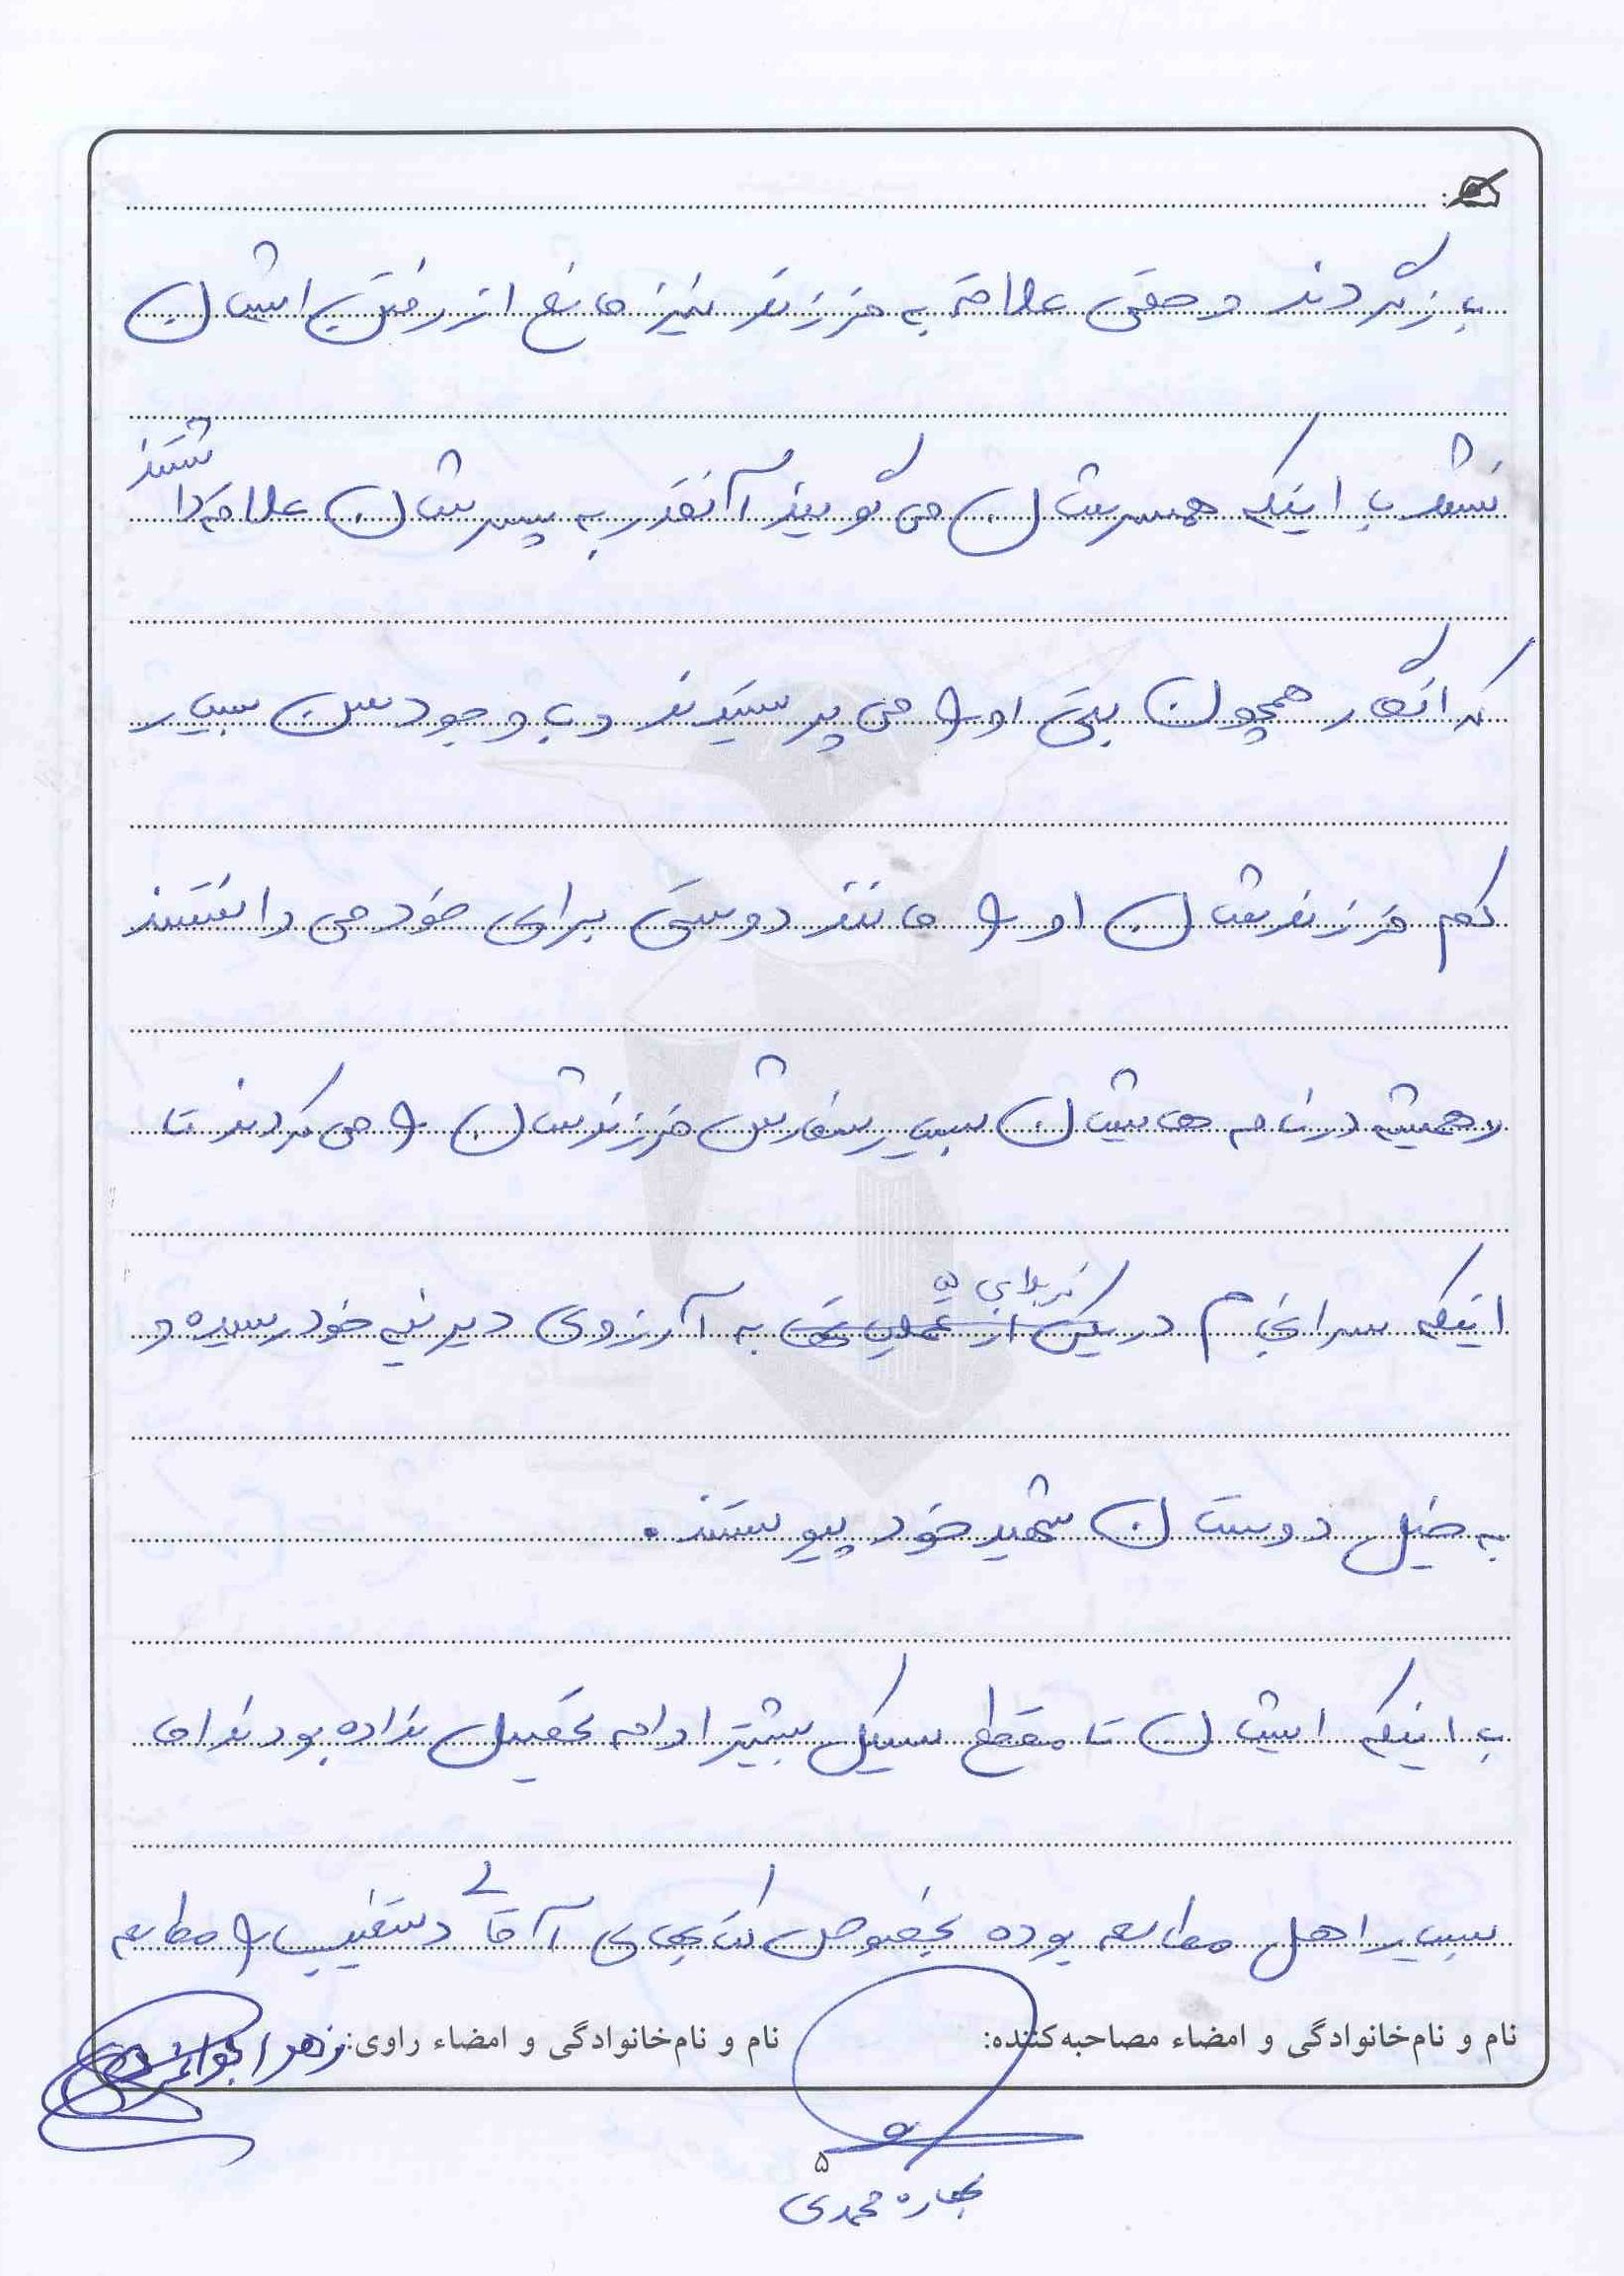 بازگردند و حتی علاقه به فرزند نیز مانع از رفتن ایشان
نشد با اینکه همسرشان می گویند آنقدر به پسرشان علاقه داشتند
که انگار همچون بتی او را می پرستیدند و با وجود سن بسیار
کم فرزندشان او را مانند دوستی برای خود می دانستند
و همیشه در نامه هایشان بسیار سفارش فرزندشان را می کردند تا
اینکه سرانجام در کربلای ۵ به آرزوی دیرینه خود رسیده و
به خیل دوستان شهید خود پیوستند.
با اینکه ایشان تا مقطع سیکل بیشتر ادامه تحصیل نداده بودند اما
بسیار اهل مطالعه بوده بخصوص کتابهای آقای دستغیب را مطالعه
نام و نام‌خانوادگی و امضاء مصاحبه‌کننده:
نام و نام‌خانوادگی و امضاء راوی: زهرا
۵
بهاره محمدی